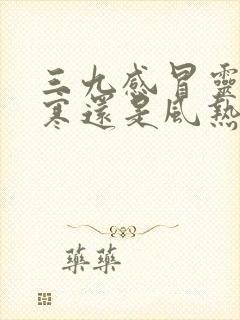 三九感冒靈
寒還是風熱
藥藥